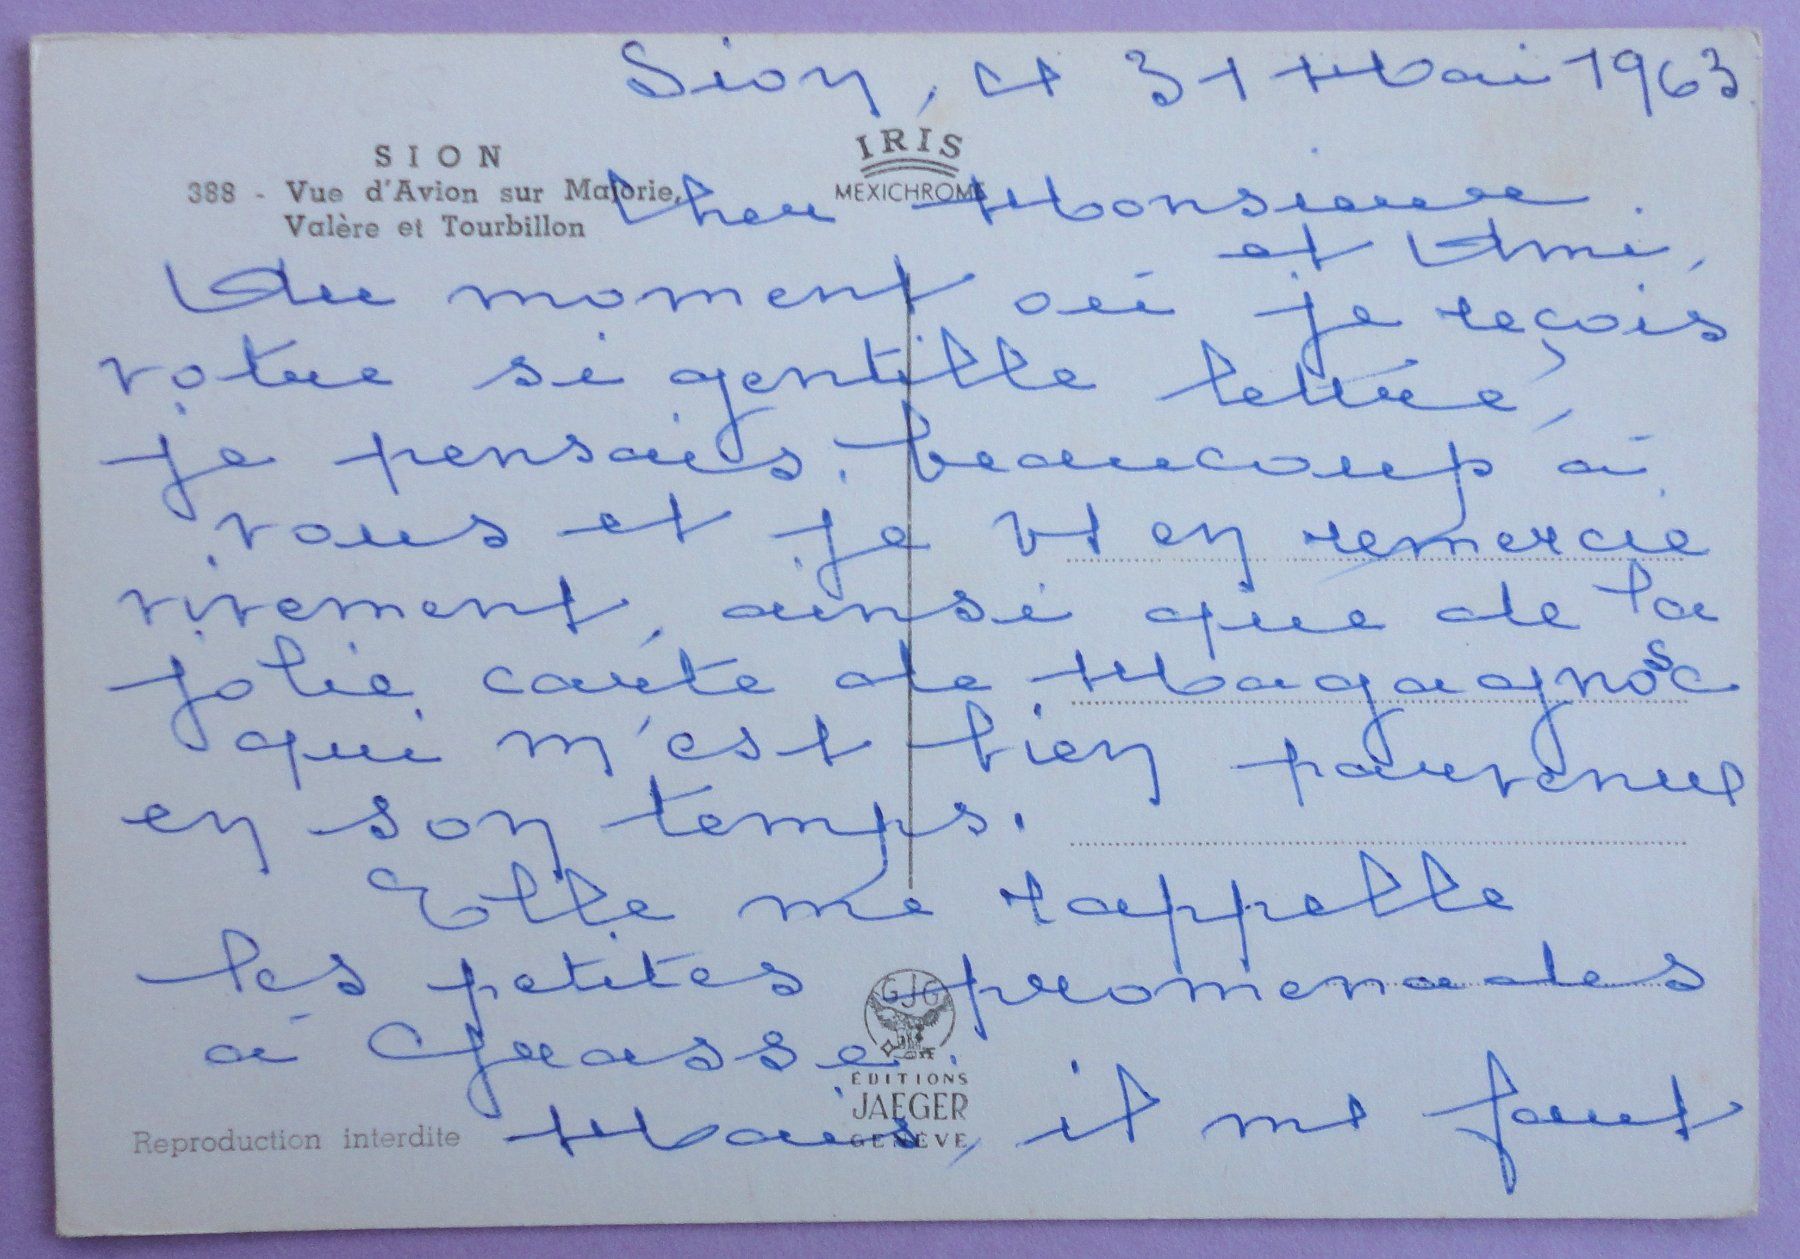 Sion, le 31 Mai 1963.
SION
388 - Vue d'Avion sur Majorie,
Valère et Tourbillon
IRIS
MEXICHROME
Cher Monsieur
et Ami,
Au moment où je reçois
votre si gentille lettre,
je pensais beaucoup à
vous et je vs en remercie
vivement, ainsi que de la
jolie carte de Magagnosc
qui m'est bien parvenue
en son temps.
Elle me rappelle
les petites promenades
à Grasse.
Mais, il me faut
GJG
ÉDITIONS
JAEGER
GENÈVE
Reproduction interdite